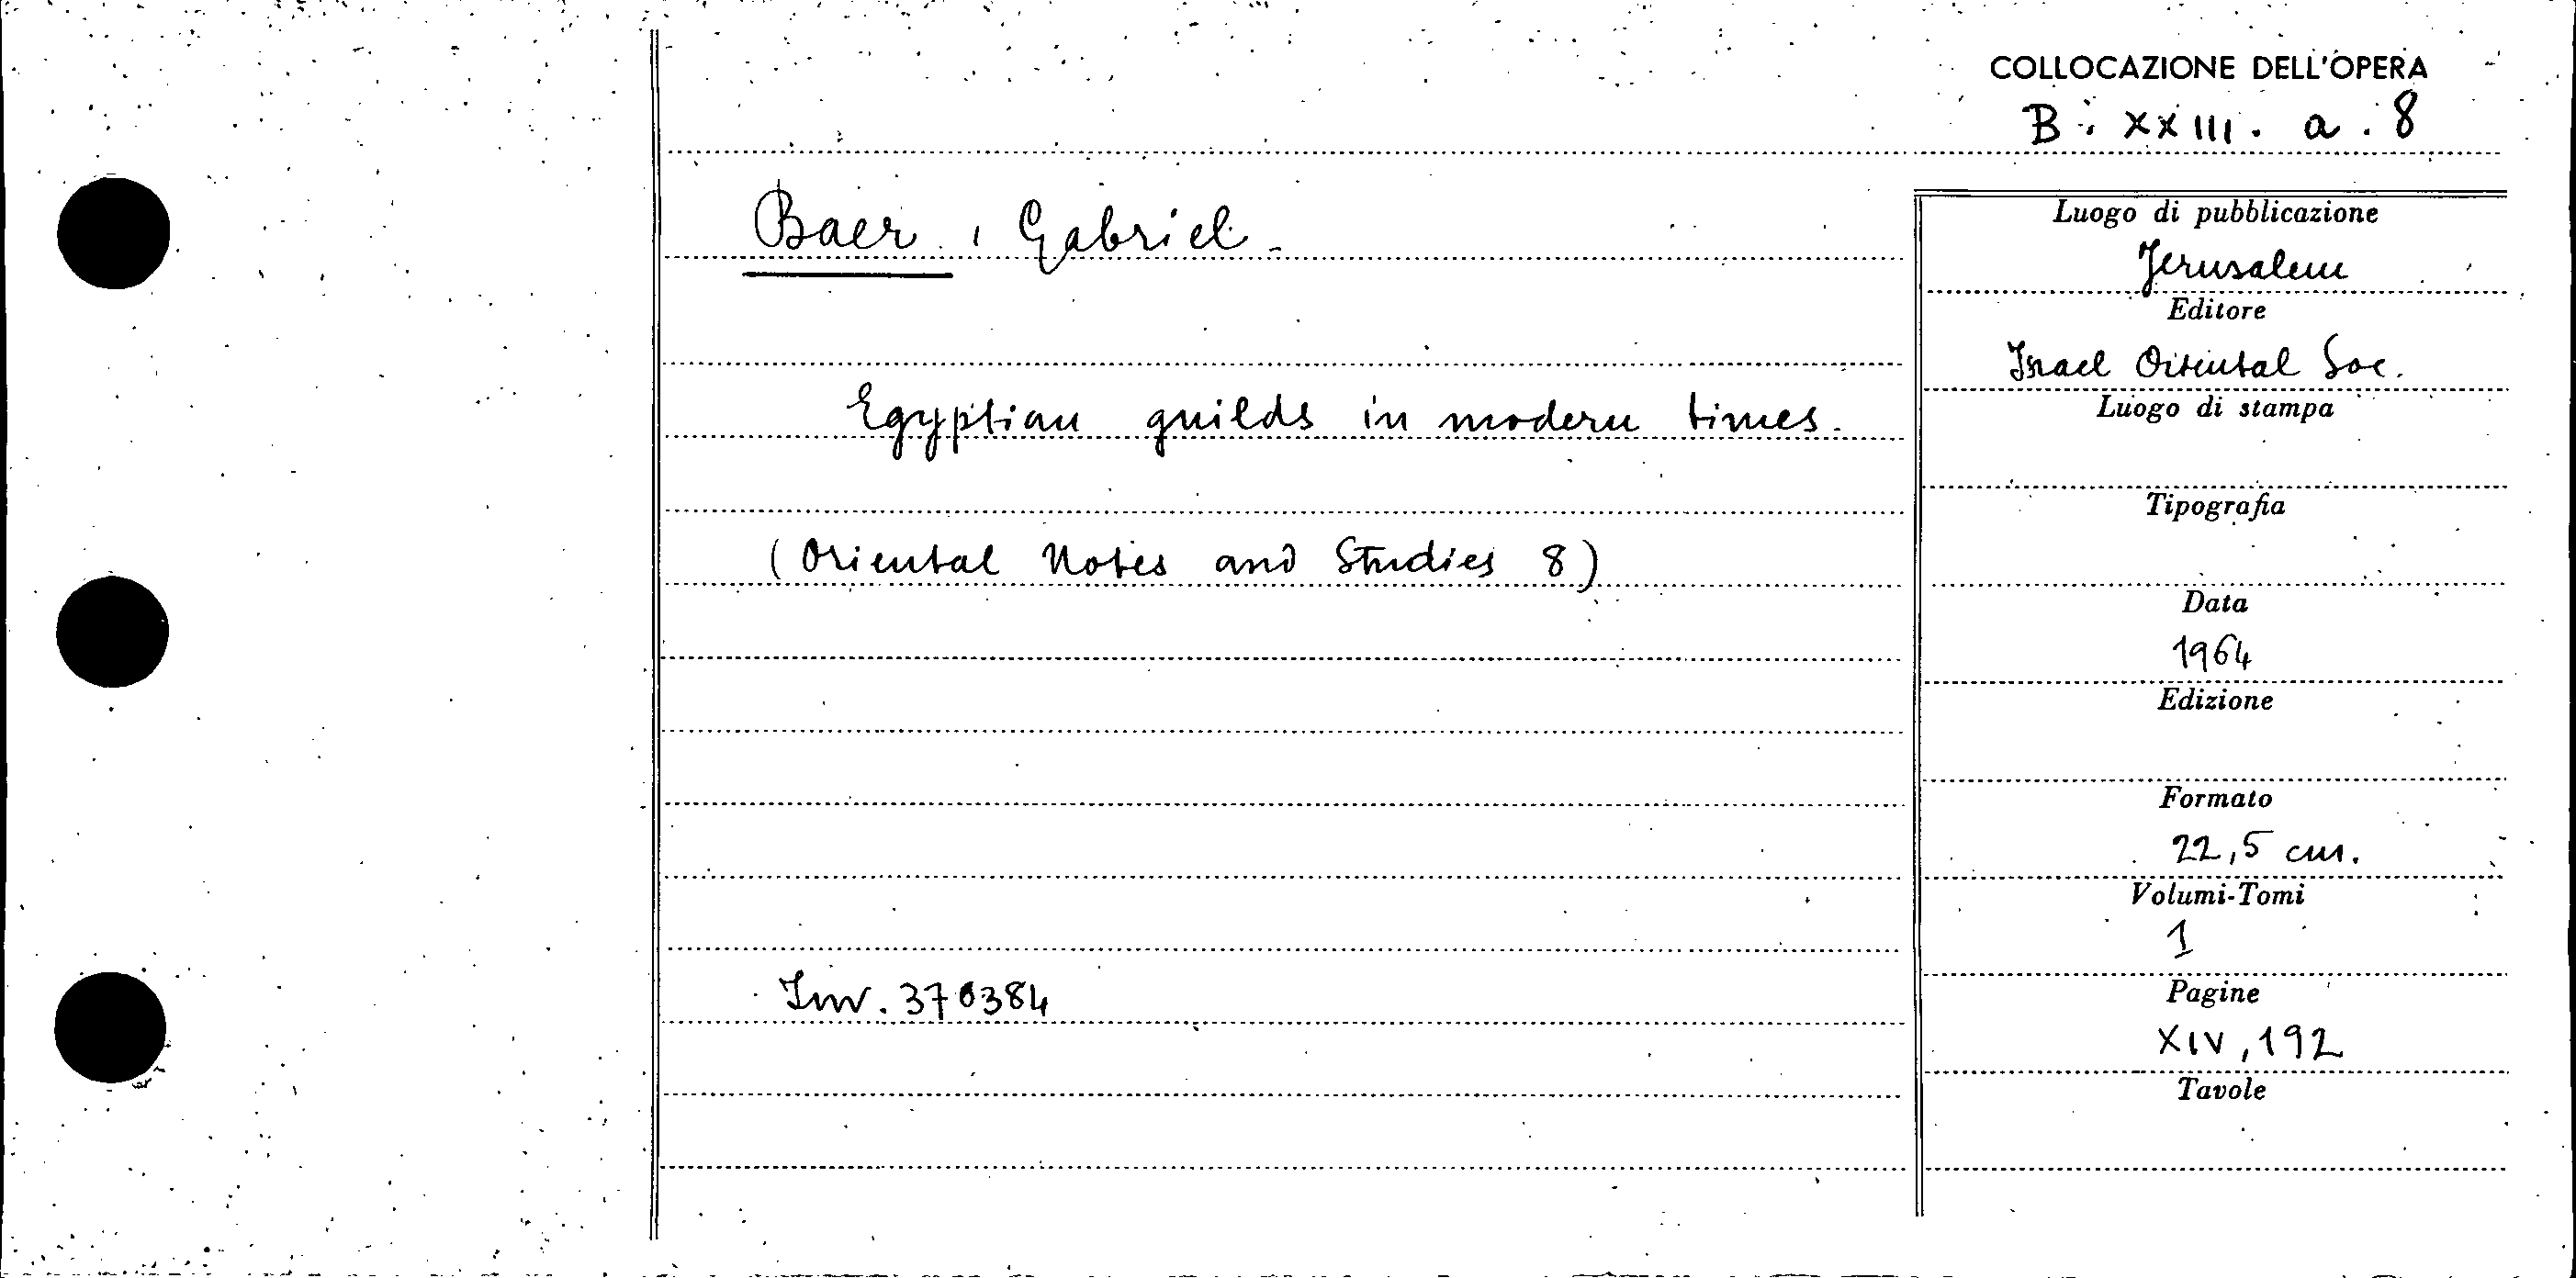 COLLOCAZIONE DELL'OPERA
B. XXIII. a. 8
Baer, Gabriel.
Egyptian guilds in modern times.
(Oriental Notes and Studies 8)
Inv. 370384
Luogo di pubblicazione
Jerusalem
Editore
Israel Oriental Soc.
Luogo di stampa
Tipografia
Data
1964
Edizione
Formato
22,5 cm.
Volumi-Tomi
1
Pagine
XIV, 192
Tavole